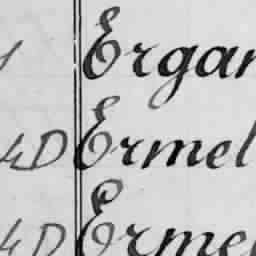 Ergan
4D Ermel
4D Erme